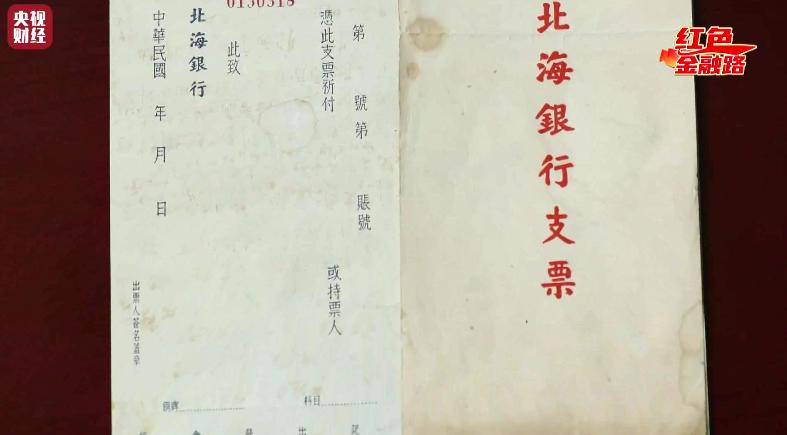 央视
财经
红色
金融路
北海銀行支票
第 號第 賬號
憑此支票祈付 或持票人
此致
北海銀行
中華民國 年 月 日
出票人簽名蓋章
科目